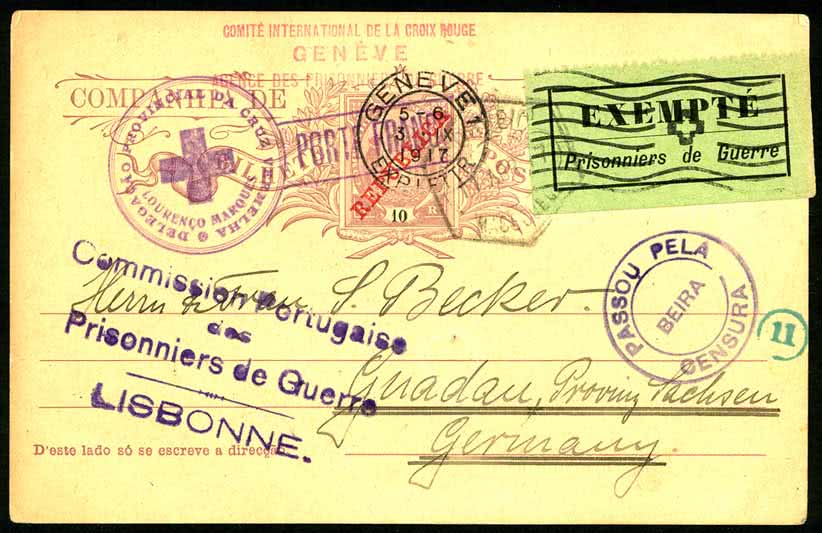 COMITÉ INTERNATIONAL DE LA CROIX ROUGE
GENÈVE
AGENCE DES PRISONNIERS DE
COMPANHIA DE
DELEGAÇÃO PROVINCIAL DA CRUZ VERMELHA
LOURENÇO MARQUES
PORTE FRANCO
GENÈVE 1
5-6
3 IX
1917
EXP. LETTR.
REPUBLICA
10 R
EXEMPTÉ
Prisonniers de Guerre
PASSOU PELA
BEIRA
CENSURA
11
Herrn & Frau S. Becker.
Commission Portugaise
des
Prisonniers de Guerre
LISBONNE.
Gnadau, Provinz Sachsen
Germany.
D'este lado só se escreve a direcção